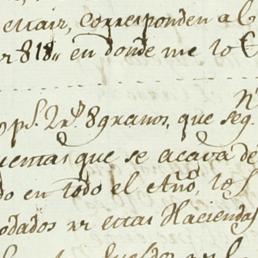 estais, corresponden al
818,, en donde me lo
N
ps. 2 rs. 8 granos, que seg.
cuentas que se acava de
do en todo el Año, los
dados estas Haciendas